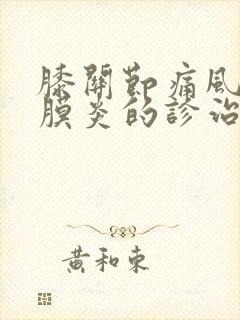 膝關節痛風
膜炎的診治
黃和東